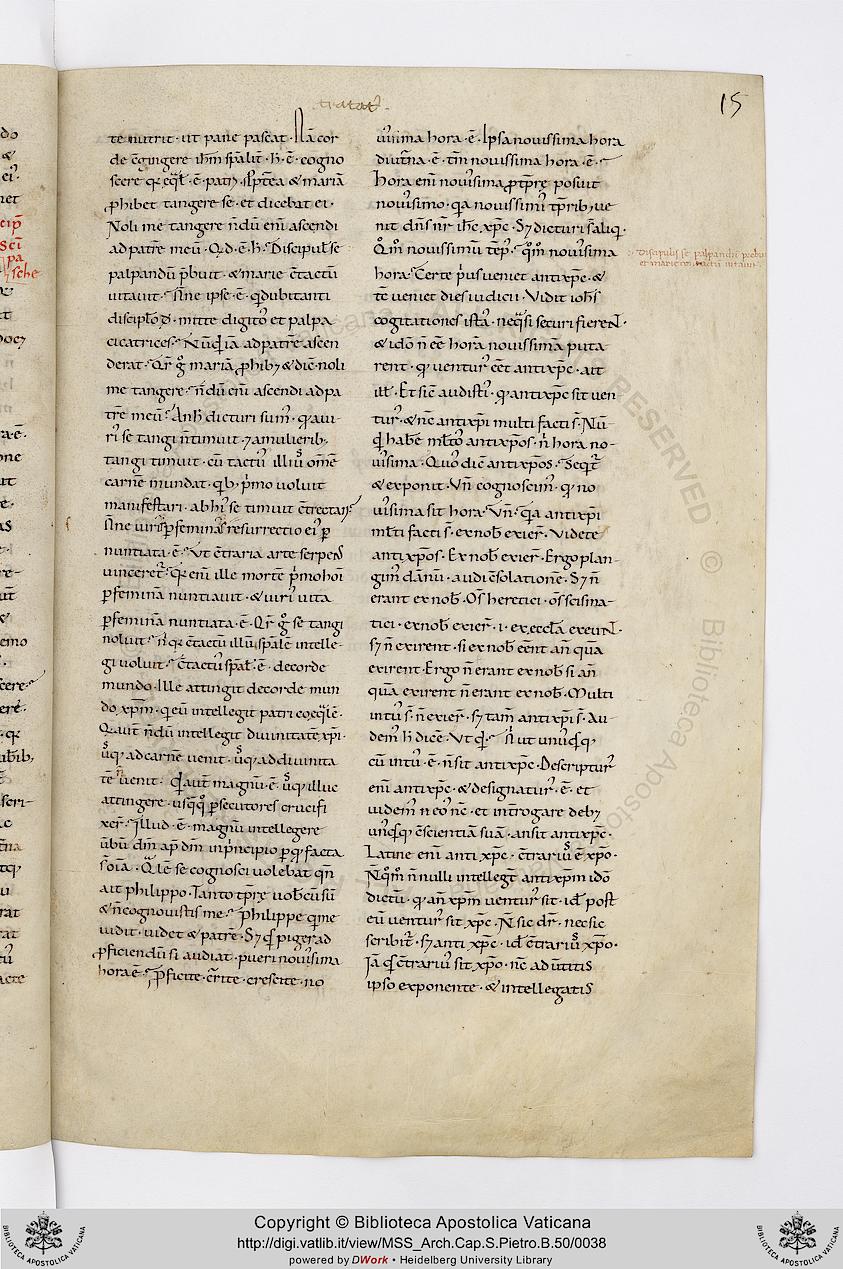 tractat̃.
15
te nutrit · ut pane pascat · Nā cor
de c̄tingere ihm̄ sp̄alit̃ · h · ē · cogno
scere qr eq̄l · ē · patri · Propt̃ea & mariā
ꝓhibet tangere se · et dicebat ei ·
Noli me tangere n̄dū eni ascendi
ad patrē meū · Q d · ē · h · Discipul se
palpandū p̃buit · & marie c̄tactū
uitauit · Nne ipse · ē · q dubitanti
discipło d̄ · mitte digitos et palpa
cicatrices · Nūqd iā ad patrē ascen
derat · Qr g̊ mariā ꝓhib; & dic̄ · noli
me tangere · n̄dū eni ascendi ad pa
trē meū · An h dicturi sum̃ · q a ui-
ris se tangi n̄ timuit · ⁊ a mulierib;
tangi timuit · cū tact illius om̄e
carnē mundat · quib; p̃mo uoluit
manifestari · ab his se timuit c̄trectari
Nne uiris p feminas resurrectio eius
nuntiata · ē · Ut c̄traria arte serpens
uinceret̃ · qr eni ille mortē p̃mo hoī
p feminā nuntiauit · & uiris uita
p feminā nuntiata · ē · Qr g̊ se tangi
noluit · n̄ qr c̄tactū illū sp̄alē intelle-
gi uoluit · C̄tactus sp̄al · ē · de corde
mundo · Ille attingit de corde mun
do xp̄m · q eū intellegit patri coeq̄lē ·
Q aut̃ n̄dū intellegit diuinitatē xp̄i ·
usq; ad carnē uenit · usq; ad diuinita
tē n̄ uenit · Qd aut̃ magnū · ē · usq; illuc
attingere · usq̄q; p̃secutores crucifi
xer̃ · Illud · ē · magnū intellegere
ūbū dm̄ ap̄ dm̄ in p̃ncipio p q facta
s̃ oīa · Qalē se cognosci uolebat qn̄
ait philippo · Tanto tp̄re uobcū sū
& n̄ cognouistis me · Philippe q me
uidit · uidet & patrē · S; q̄s piger ad
ꝓficiendū si audiat · pueri nouissima
hora ē · Proficite · c̃rite · crescite · no
uissima hora · ē · Ipsa nouissima hora
diut̃na · ē · tm̄ nouissima hora · ē ·
Hora eni nouissima ꝓ tp̃re posuit
nouissimo · qa nouissimis tp̃rib; ue
niet dn̄s nr̄ ih̄c xp̄c · S; dicturi s̃ aliq ·
Qm̄ nouissimū tēp · qm̄ nouissima
hora · Certe prius ueniet antixp̄c · &
tē ueniet dies iudicii · Vidit ioh̄s
cogitationes istas · ne q̄si securi fierent ·
& ido n̄ ēe hora nouissimā puta
rent · q uenturus ēet antixp̄c · ait
ill · Et sic audistis · q antixp̄c sit uen
turus · & nc̄ antixp̄i multi facti s̃ · Nū-
qd hab̄e mltos antixp̄os · n̄ hora no-
uissima · Quos dic̄ antixp̄os · Seqt̃
& exponit · Vn̄ cognoscim · q no
uissima sit hora · Vn̄ · Qa antixp̄i
mlti facti s̃ · ex nob exier̃ · Videte
antixp̄os · Ex nob exier̃ · Ergo plan-
gim dānū · audi c̄solationē · S; n̄
erant ex nob · Oms heretici · oms scisma-
tici · ex nob exier̃ · i · ex ecclā exeunt ·
S; n̄ exirent · si ex nob ēent an̄ quā
exirent · Ergo n̄ erant ex nob si an̄
quā exirent n̄ erant ex nob · Multi
intus s̃ · n̄ exier̃ · S; tam̄ antixp̄i s̃ · Au-
dem h dicē · Ut qd · Ni ut unusq̄sq;
cū intus · ē · n̄ sit antixp̄c · Descripturus
eni antixp̄c · & designaturus · ē · et
uidem n̄ eos nc̄ · et int̃rogare deb;
unusq̄sq; c̄scientiā suā · an sit antixp̄c ·
Latine eni antixp̄c · c̄trarius ē xp̄o ·
N̄ qm̄ n̄ nulli intellegt̄ antixp̄m ido
dictū · q an̄ xp̄m uenturus sit · id̄ post
eū uenturus sit xp̄c · N̄ sic dr̄ · nec sic
scribit̃ · S; antixp̄c · id̄ c̄trarius xp̄o ·
Iā q̄s c̄trarius sit xp̄o · nc̄ aduertitis
ipso exponente · & intellegatis
Discipulis se palpandū prebu
et marie contactū uitauit
Copyright © Biblioteca Apostolica Vaticana
http://digi.vatlib.it/view/MSS_Arch.Cap.S.Pietro.B.50/0038
powered by DWork • Heidelberg University Library